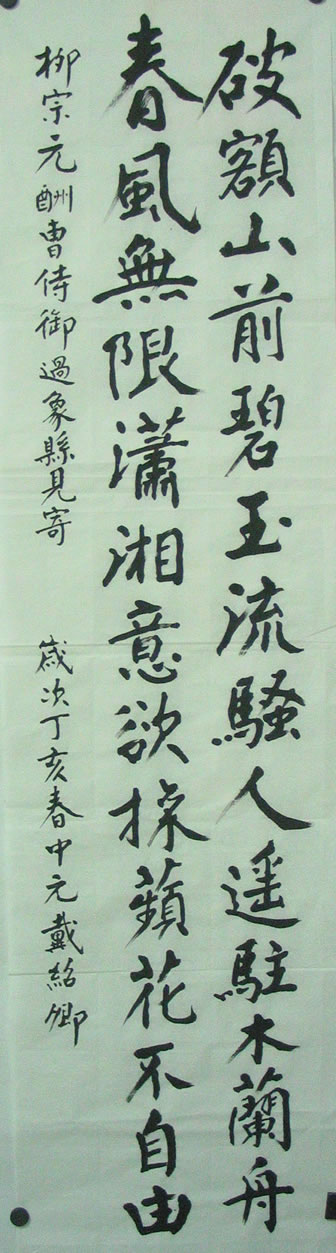 破額山前碧玉流騷人遥駐木蘭舟
春風無限瀟湘意欲採蘋花不自由
柳宗元酬曹侍御過象縣見寄 歲次丁亥春中元戴紹卿